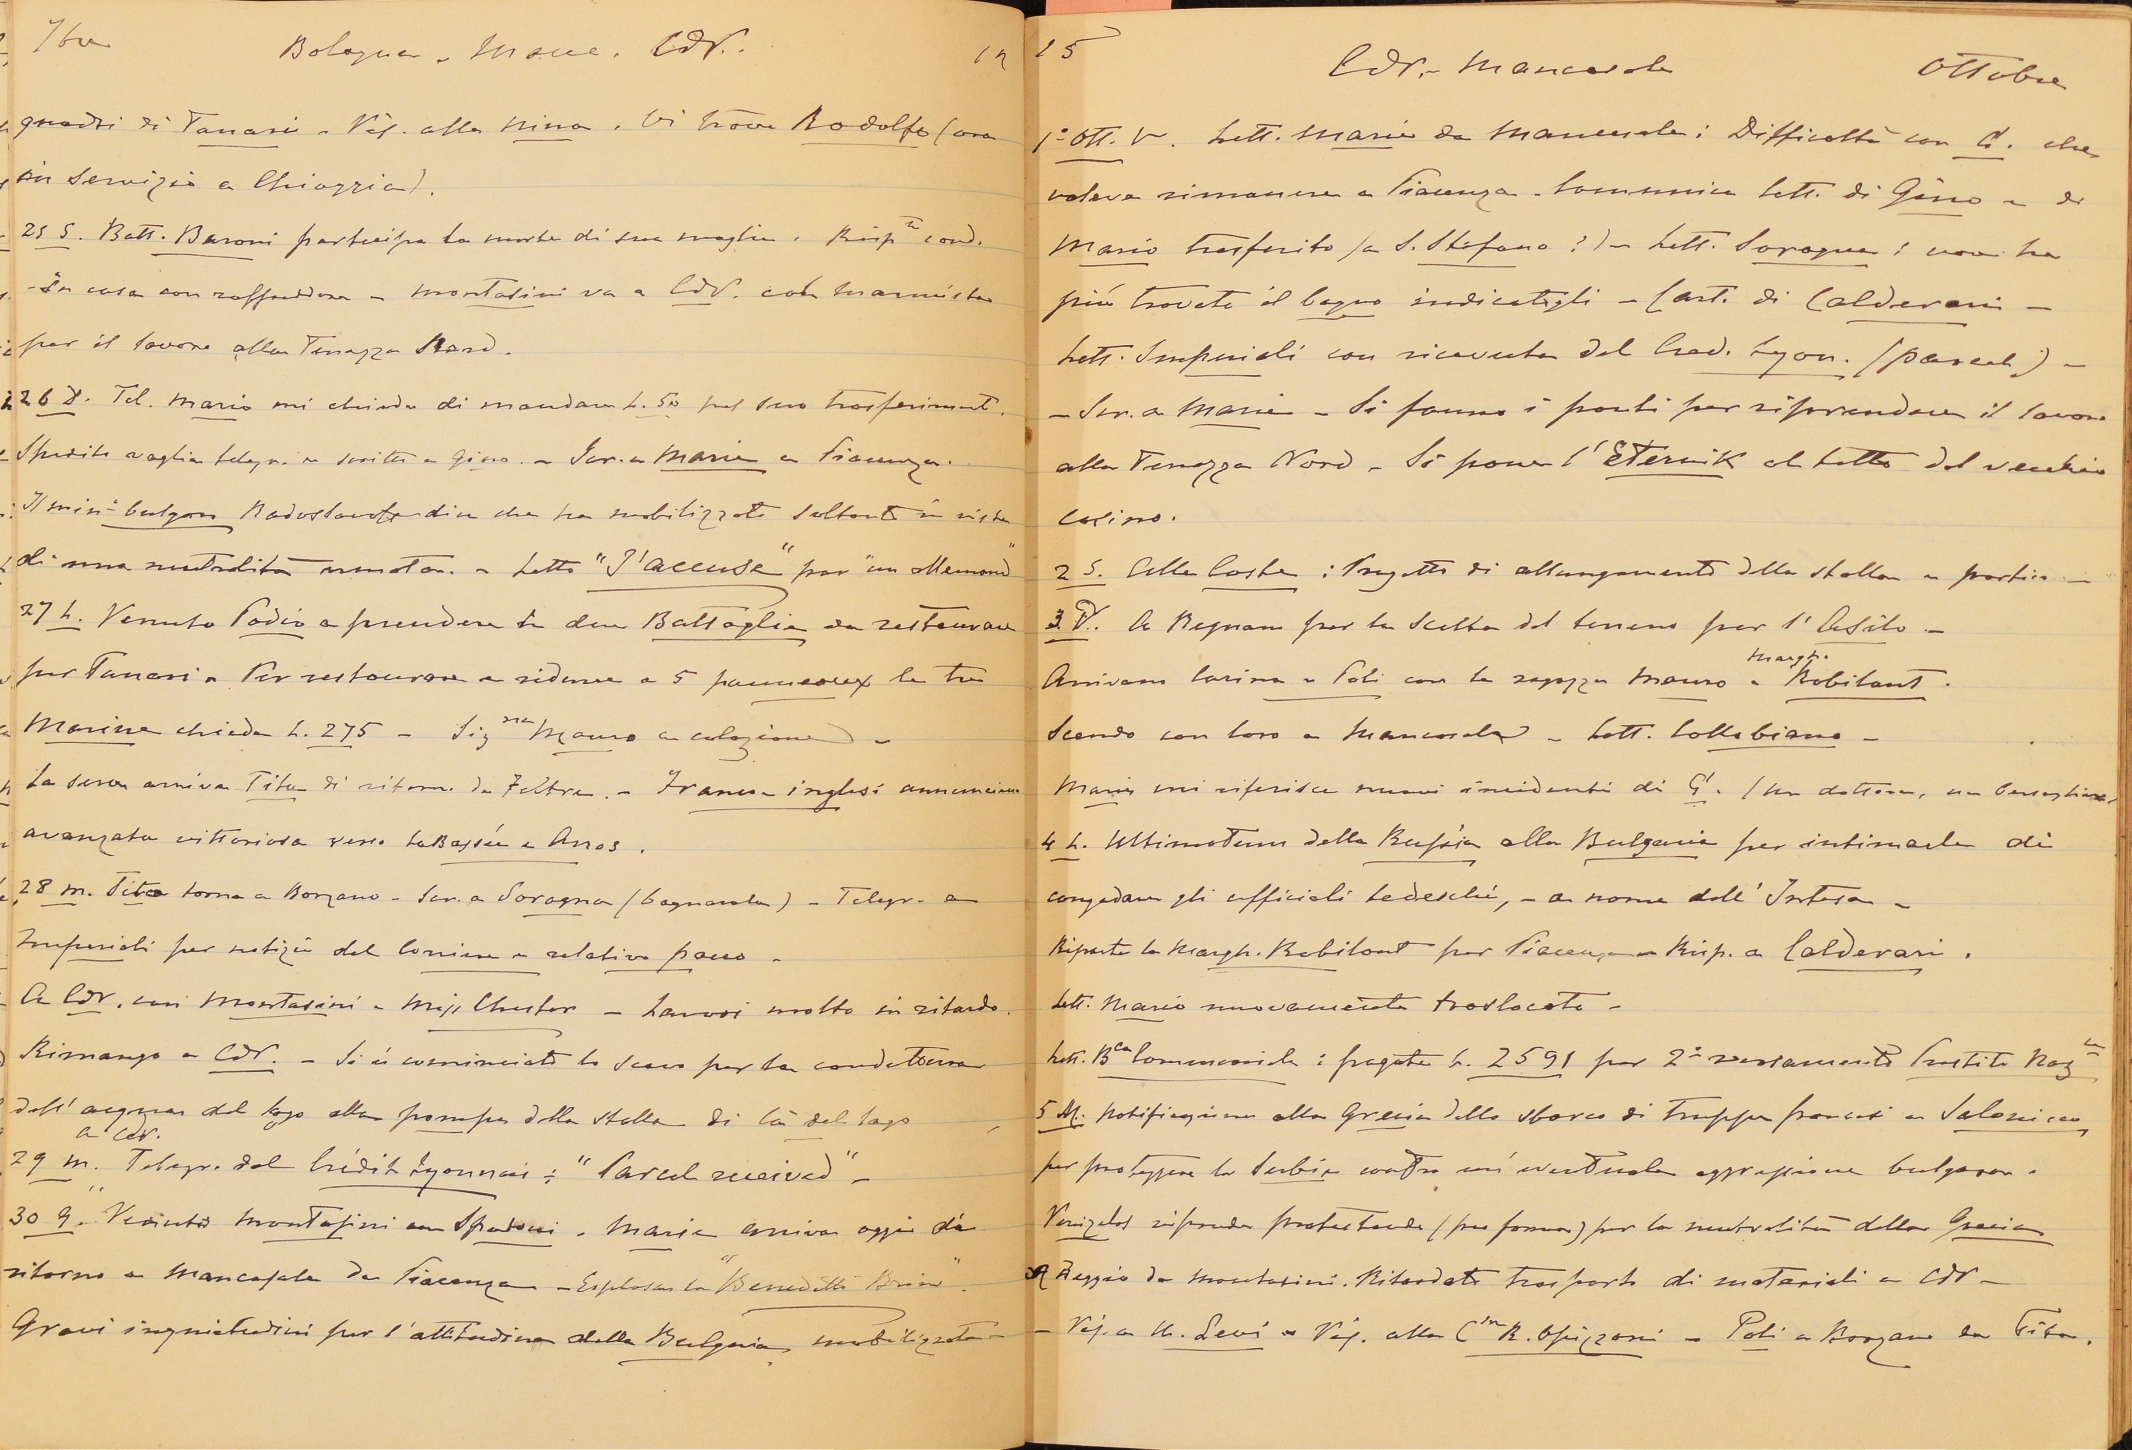 7bre Bologna - Manc. CdV. 19
quadri di Tanari - Vis. alla Nina. Vi trovo Rodolfo (ora
in servizio a Chioggia).
25 S. Batt. Baroni partecipa la morte di sua moglie. Risp. cond.
- In casa con raffreddore - Montasini va a CdV. col
per il lavoro alla Terrazza Nord.
26 D. Tel. Mario mi chiede di mandare L. 50 pel suo trasferiment.
Spedito vaglia telegr. e scritto a Gino. - Scr. a Maria a Piacenza.
Il min. bulgaro Radoslavoff dice che ha mobilizzato soltanto in vista
di una neutralità armata. - Letto "J'accuse" par "un allemand"
27 L. Venuto Podio a prendere le due Battaglie da restaurare
per Tanari - Per restaurare e ridurre a 5 panneaux le tre
Marine chiede L. 275 - Sig.na Mauro a colazione -
La sera arriva Tita di ritorno da Feltre. - Franco-inglesi annunciano
avanzata vittoriosa verso La Bassée e Arras.
28 M. Tita torna a Borzano - Scr. a Soragna (bagnarola) - Telegr. a
Imperiali per notizie del Corriere e relativo pacco -
A CdV. con Montasini e Miss Chester - Lavori molto in ritardo.
Rimango a CdV. - Si è cominciato lo scavo per la conduttura
dell'acqua del lago alla pompa della stalla di là del lago
a CdV.
29 M. Telegr. del Crédit Lyonnais: "Parcel received" -
30 G. Venuto Montasini con Spadoni. Maria arriva oggi di
ritorno a Mancasale da Piacenza - Esplosa la "Benedetto Brin".
Gravi inquietudini per l'attitudine della Bulgaria, mobilizzata -
15 CdV. - Mancasale Ottobre
1° Ott. V. Lett. Maria da Mancasale: Difficoltà con G. che
voleva rimanere a Piacenza. Comunica lett. di Gino e di
Mario trasferito (a S. Stefano?) - Lett. Soragna: non ha
più trovato il bagno indicatogli - Cart. di Calderari -
Lett. Imperiali con ricevuta del Cred. Lyon. (parcel) -
- Scr. a Maria - Si fanno i ponti per riprendere il lavoro
alla Terrazza Nord - Si pone l'Eternik al tetto del vecchio
casino.
2 S. Alle Coste: Progetto di allungamento della stalla e portico -
3 D. A Regnano per la scelta del terreno per l'Asilo -
Arrivano Carina e Poli con la ragazza Mauro e Margh. Robilant.
Scendo con loro a Mancasale - Lett. Collobiano -
Maria mi riferisce nuovi incidenti di G. (un dottore, un bersagliere)
4 L. Ultimatum della Russia alla Bulgaria per intimarle di
congedare gli ufficiali tedeschi, - a nome dell'Intesa -
Riparte la Margh. Robilant per Piacenza - Risp. a Calderari.
Lett. Mario nuovamente traslocato -
Lett. B.ca Commerciale: pagate L. 2591 per 2° versamento Prestito Naz.le
5 M. Notificazione alla Grecia dello sbarco di truppe francesi a Salonicco,
per proteggere la Serbia contro un'eventuale aggressione bulgara.
Venizelos risponde protestando (pro forma) per la neutralità della Grecia
A Reggio da Montasini. Ritardato trasporto di materiali a CdV -
- Vis. a U. Levi - Vis. alla C.ssa R. Spizzoni - Poli a Borzano da Tita.